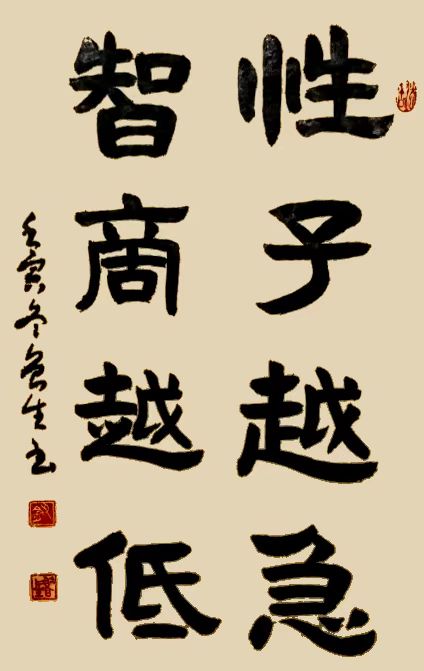 性子越急
智商越低
壬寅冬魯生书